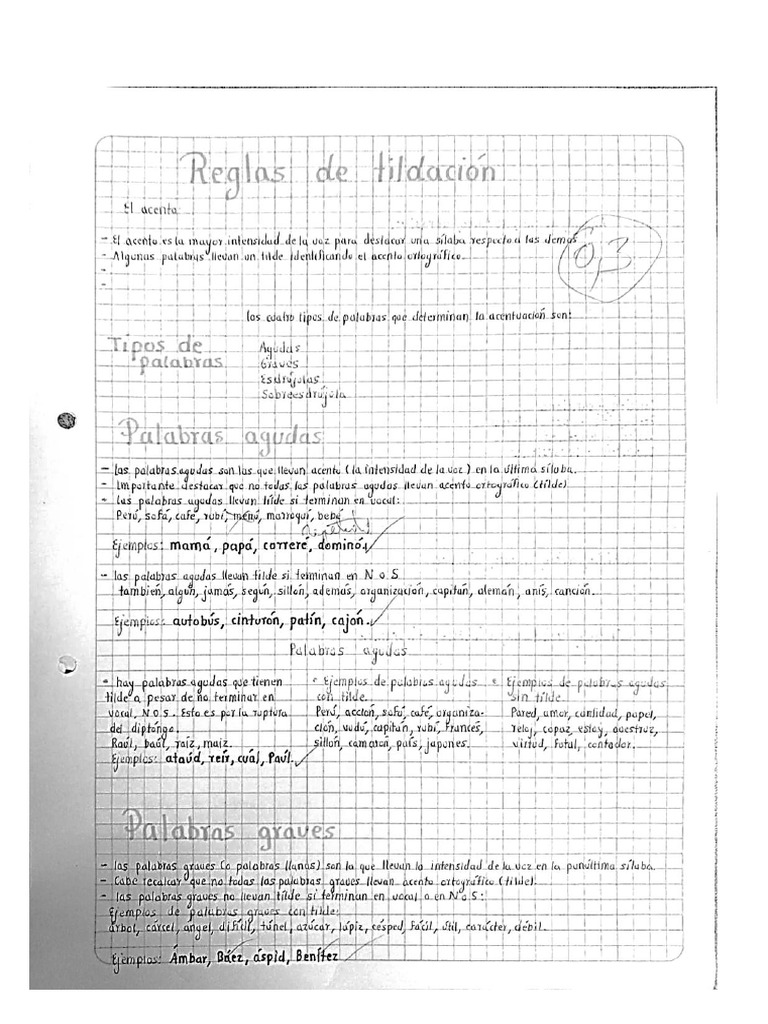 Reglas de tildación
El acento
- El acento es la mayor intensidad de la voz para destacar una sílaba respecto a las demás
- Algunas palabras llevan un tilde identificando el acento ortográfico.
-
-
0,3
los cuatro tipos de palabras que determinan la acentuación son:
Tipos de palabras
Agudas
Graves
Esdrújulas
Sobreesdrújula
Palabras agudas
- las palabras agudas son las que llevan acento (la intensidad de la voz) en la última sílaba.
- Importante destacar que no todas las palabras agudas llevan acento ortográfico (tilde)
- Las palabras agudas llevan tilde si terminan en vocal:
Perú, sofá, café, rubí, menú, marroquí, bebé
Ejemplos: mamá, papá, correré, dominó.
- las palabras agudas llevan tilde si terminan en N o S
también, algún, jamás, según, sillón, además, organización, capitán, alemán, anís, canción.
Ejemplos: autobús, cinturón, patín, cajón.
Palabras agudas
• hay palabras agudas que tienen
tilde a pesar de no terminar en
vocal, N o S. Esto es por la ruptura
del diptongo.
Raúl, baúl, raíz, maíz.
Ejemplos: ataúd, reír, cuál, Paúl.
• Ejemplos de palabras agudas
con tilde.
Perú, acción, sofá, café, organiza-
ción, vudú, capitán, rubí, Francés,
sillón, camarón, país, japonés.
• Ejemplos de palabras agudas
sin tilde.
Pared, amor, cantidad, papel,
reloj, capaz, estoy, avestruz,
virtud, fatal, contador.
Palabras graves
- las palabras graves (o palabras llanas) son la que llevan la intensidad de la voz en la punúltima sílaba.
- Cabe recalcar que no todas las palabras graves llevan acento ortográfico (tilde).
- las palabras graves no llevan tilde si terminan en vocal o en N o S:
Ejemplos de palabras graves con tilde:
árbol, cárcel, ángel, difícil, túnel, azúcar, lápiz, césped, fácil, útil, carácter, débil.
Ejemplos: Ámbar, Báez, áspid, Benítez